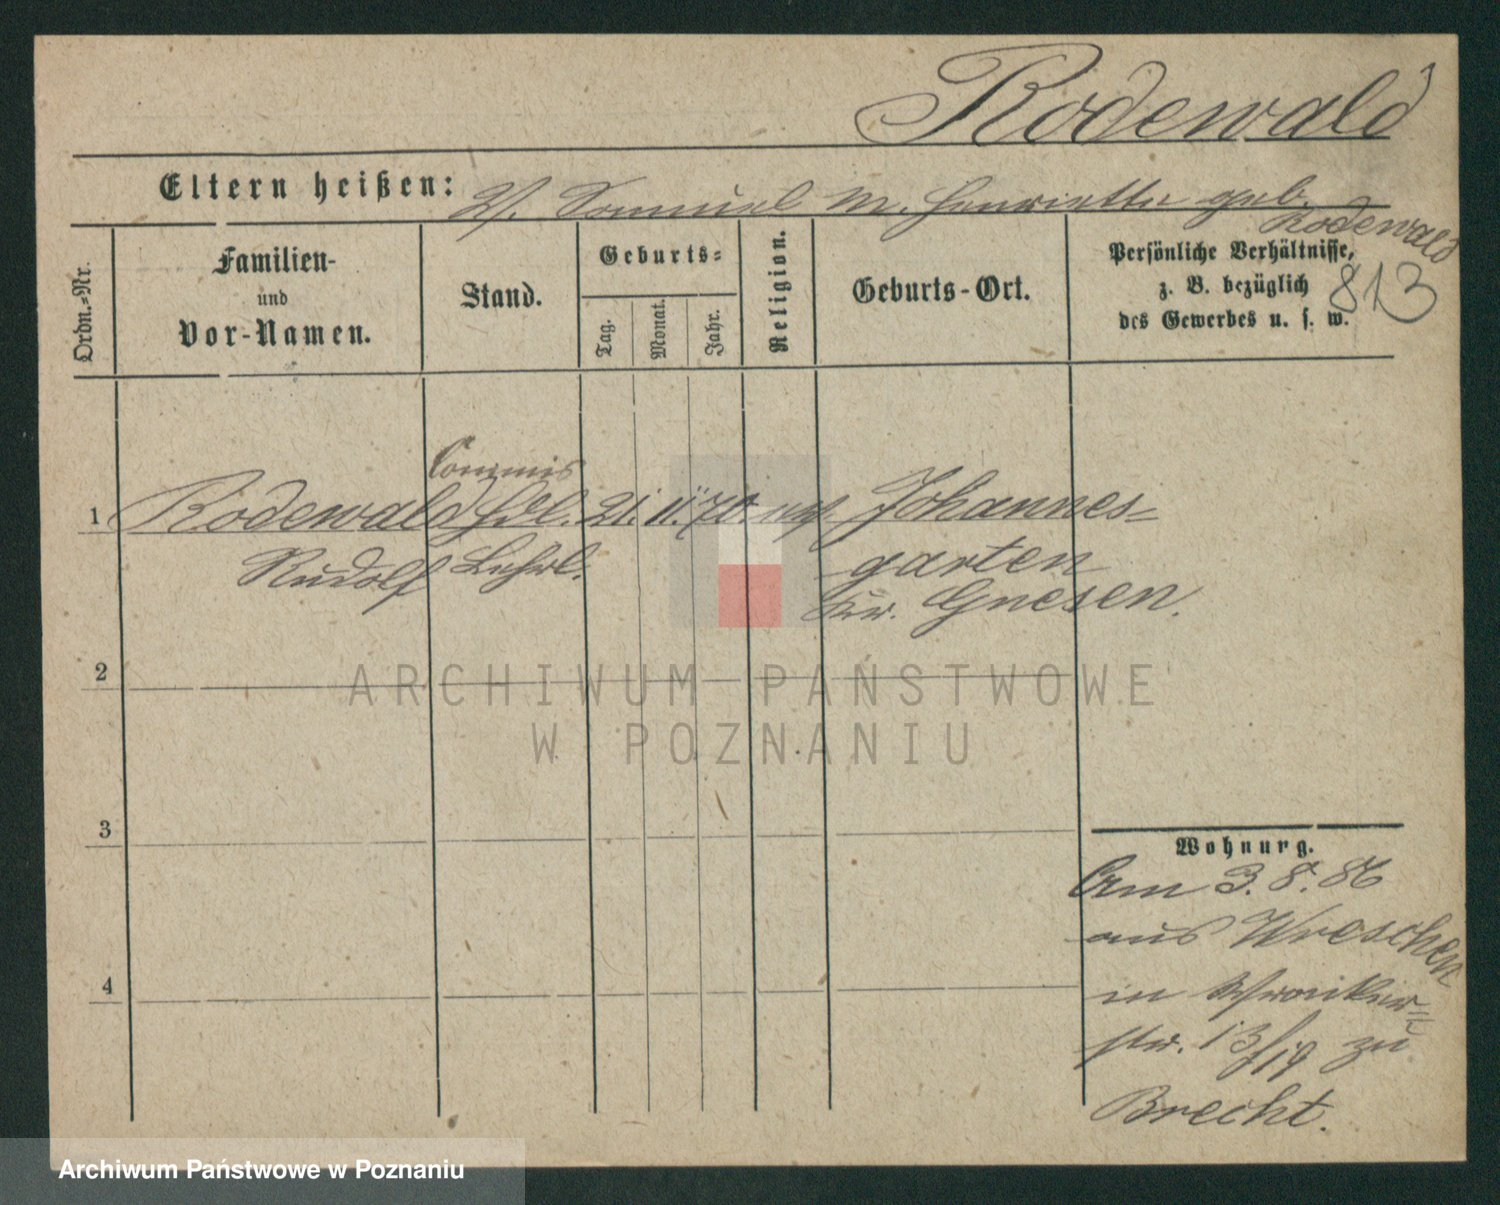 Rodewald
Eltern heißen: V. Samuel M. Henriette geb.
Rodewald
813
Ordn.=Nr.
Familien-
und
Vor-Namen.
Stand.
Geburts=
Tag.
Monat.
Jahr.
Religion.
Geburts-Ort.
Persönliche Verhältnisse,
z. B. bezüglich
des Gewerbes u. s. w.
Commis
1 Rodewald Hdl. 21. 11. 70. Johannes=
Rudolf Lehrl. garten
Kr. Gnesen.
2
3
4
Wohnurg.
Am 3. 8. 86
aus Wreschen
in Wronker=
str. 13/19 zu
Brecht.
ARCHIWUM PAŃSTWOWE
W POZNANIU
Archiwum Państwowe w Poznaniu